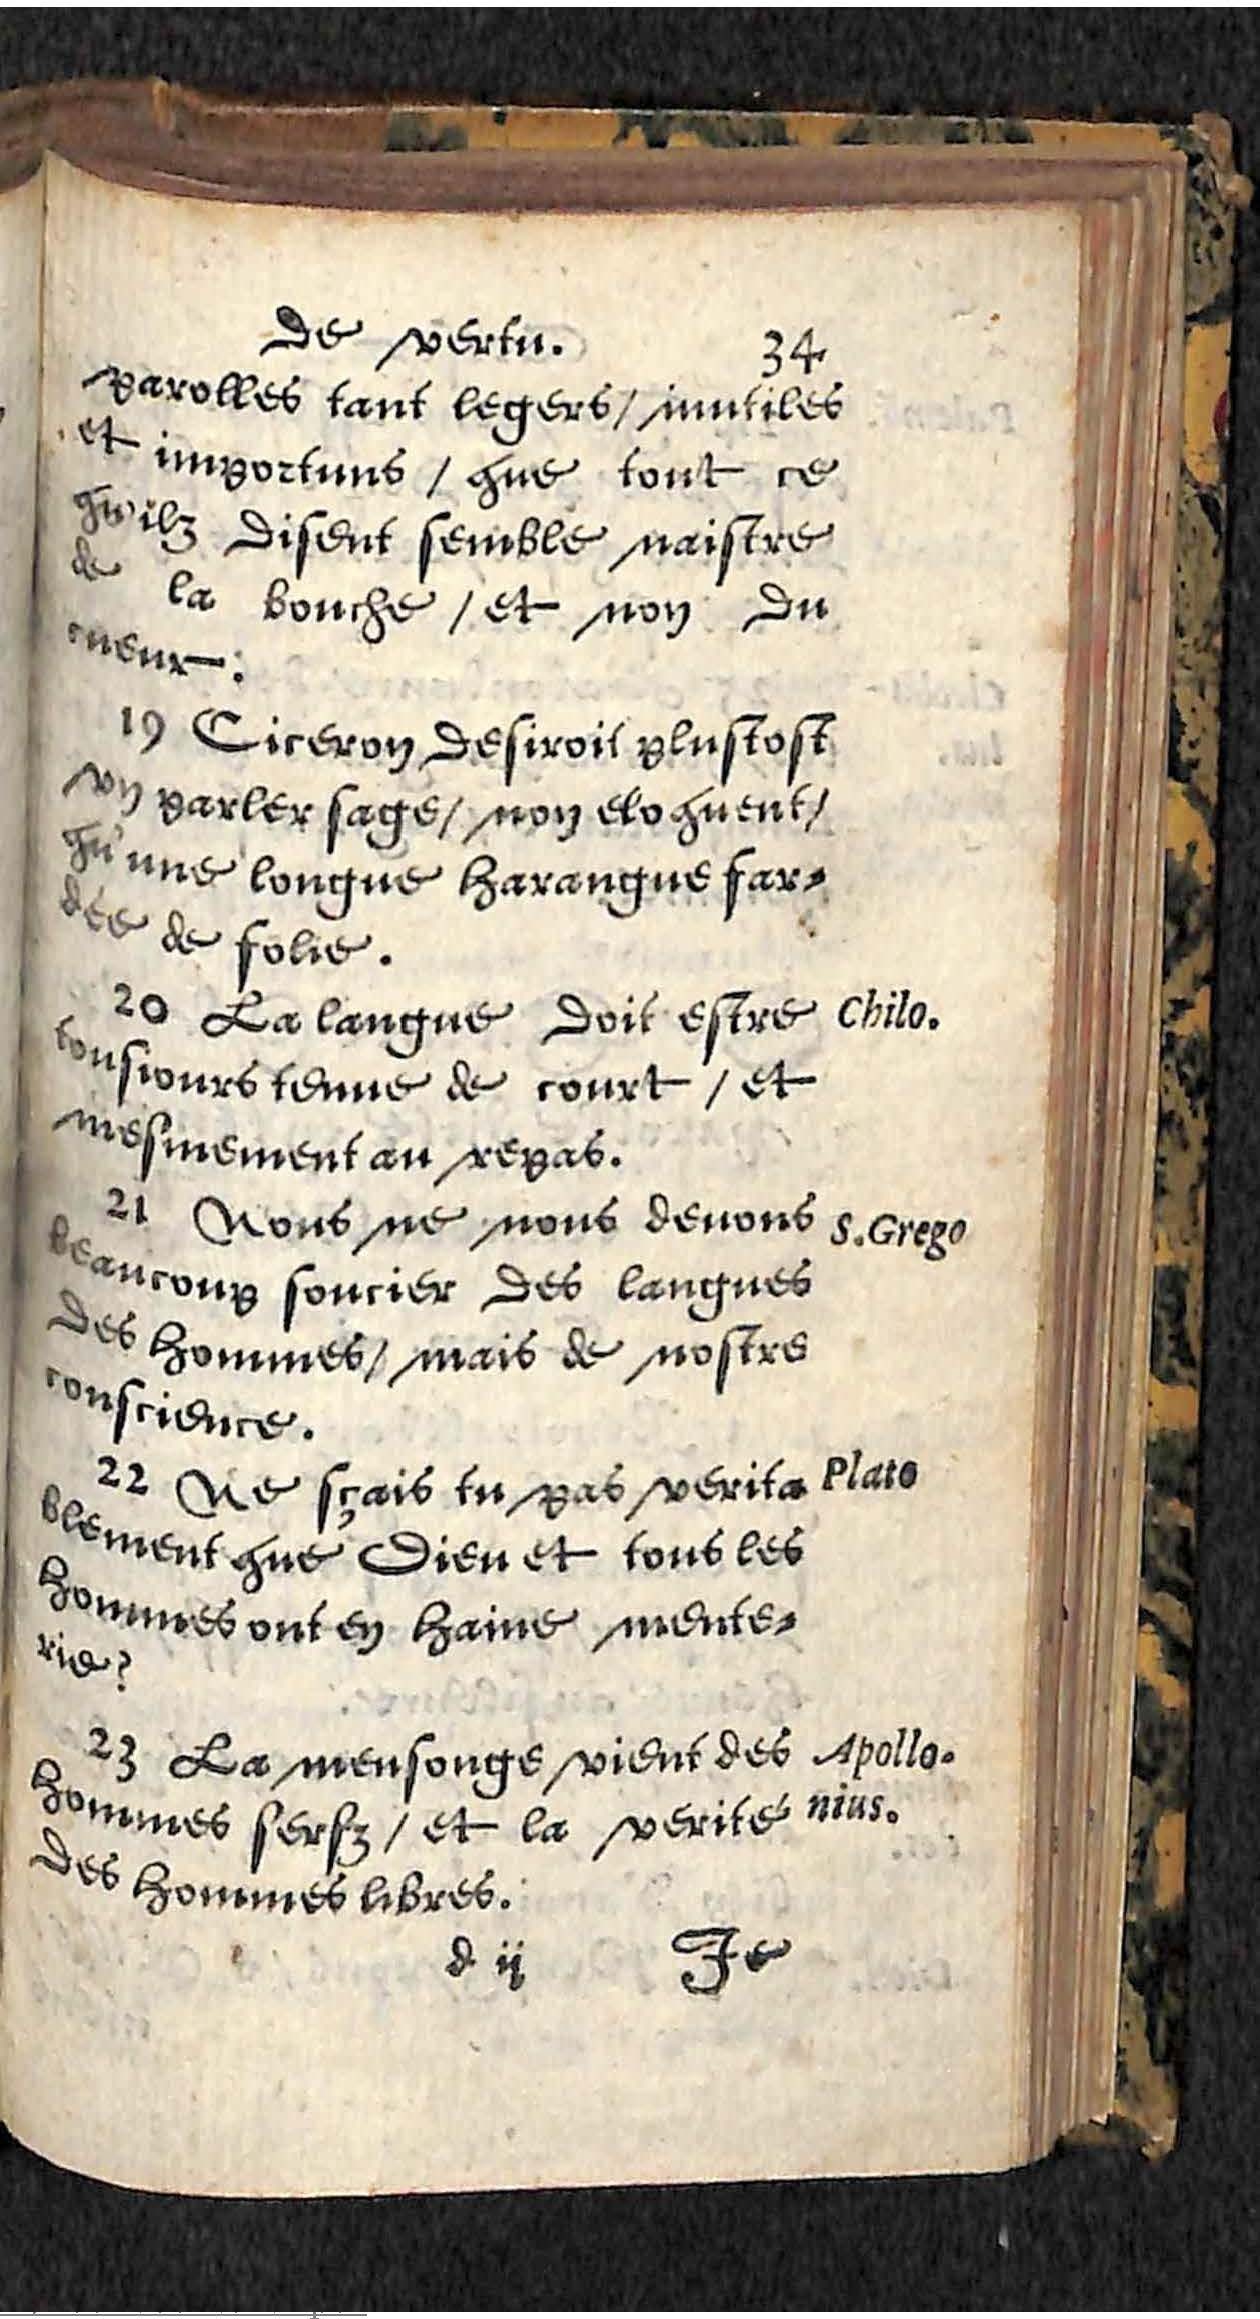 De vertu. 34
parolles tant legers/ inutiles
et importuns / que tout ce
qu'ilz disent semble naistre
de la bouche / et non du
cueur:
19 Ciceron desiroit plustost
vn parler sage/ non eloquent/
qu'une longue harangue far-
dée de folie.
20 La langue doit estre Chilo.
tousiours tenue de court / et
mesmement au repas.
21 Nous ne nous deuons S. Grego
beaucoup soucier des langues
des hommes/ mais de nostre
conscience.
22 Ne sçais tu pas verita Plato
blement que Dieu et tous les
hommes ont en haine mente-
rie?
23 La mensonge vient des Apollo-
hommes serfz / et la verité nius.
des hommes libres.
d ij Je